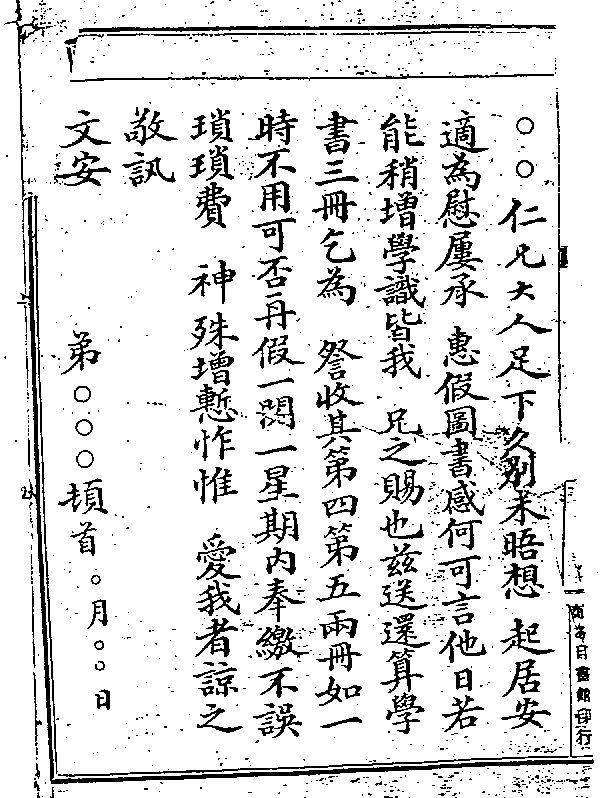 ○○仁兄大人足下久別未晤想 起居安
適為慰屢承 惠假圖書感何可言他日若
能稍增學識皆我 兄之賜也茲送還算學
書三冊乞為 詧收其第四第五兩冊如一
時不用可否再假一閱一星期內奉繳不誤
瑣瑣費 神殊增慙怍惟 愛我者諒之
敬訊
文安
弟○○○頓首 ○月○○日
商務印書館印行